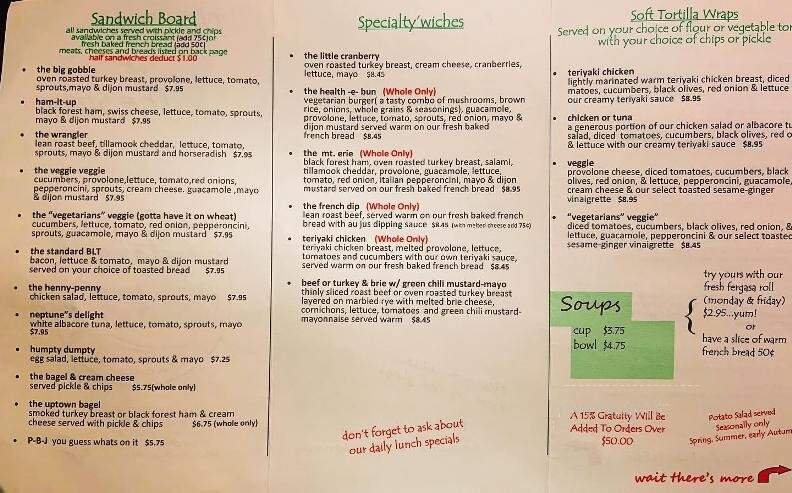 Sandwich Board
all sandwiches served with pickle and chips
available on a fresh croissant (add 75¢)or
fresh baked french bread (add 50¢)
meats, cheeses and breads listed on back page
half sandwiches deduct $1.00
the big gobble
oven roasted turkey breast, provolone, lettuce, tomato,
sprouts,mayo & dijon mustard $7.95
ham-it-up
black forest ham, swiss cheese, lettuce, tomato, sprouts,
mayo & dijon mustard $7.95
the wrangler
lean roast beef, tillamook cheddar, lettuce, tomato,
sprouts, mayo & dijon mustard and horseradish $7.95
the veggie veggie
cucumbers, provolone,lettuce, tomato,red onions,
pepperoncini, sprouts, cream cheese. guacamole ,mayo
& dijon mustard $7.95
the "vegetarians" veggie (gotta have it on wheat)
cucumbers, lettuce, tomato, red onion, pepperoncini,
sprouts, guacamole, mayo & dijon mustard $7.95
the standard BLT
bacon, lettuce & tomato, mayo & dijon mustard
served on your choice of toasted bread $7.95
the henny-penny
chicken salad, lettuce, tomato, sprouts, mayo $7.95
neptune"s delight
white albacore tuna, lettuce, tomato, sprouts, mayo
$7.95
humpty dumpty
egg salad, lettuce, tomato, sprouts & mayo $7.25
the bagel & cream cheese
served pickle & chips $5.75(whole only)
the uptown bagel
smoked turkey breast or black forest ham & cream
cheese served with pickle & chips $6.75 (whole only)
P-B-J you guess whats on it $5.75
Specialty'wiches
the little cranberry
oven roasted turkey breast, cream cheese, cranberries,
lettuce, mayo $8.45
the health -e- bun (Whole Only)
vegetarian burger( a tasty combo of mushrooms, brown
rice, onions, whole grains & seasonings), guacamole,
provolone, lettuce, tomato, sprouts, red onion, mayo &
dijon mustard served warm on our fresh baked
french bread $8.45
the mt. erie (Whole Only)
black forest ham, oven roasted turkey breast, salami,
tillamook cheddar, provolone, guacamole, lettuce,
tomato, red onion, italian pepperoncini, mayo & dijon
mustard served on our fresh baked french bread $8.95
the french dip (Whole Only)
lean roast beef, served warm on our fresh baked french
bread with au jus dipping sauce $8.45 (with melted cheese add 75¢)
teriyaki chicken (Whole Only)
teriyaki chicken breast, melted provolone, lettuce,
tomatoes and cucumbers with our own teriyaki sauce,
served warm on our fresh baked french bread $8.45
beef or turkey & brie w/ green chili mustard-mayo
thinly sliced roast beef or oven roasted turkey breast
layered on marbled rye with melted brie cheese,
cornichons, lettuce, tomatoes and green chili mustard-
mayonnaise served warm $8.45
don't forget to ask about
our daily lunch specials
Soft Tortilla Wraps
Served on your choice of flour or vegetable tor
with your choice of chips or pickle
teriyaki chicken
lightly marinated warm teriyaki chicken breast, diced
matoes, cucumbers, black olives, red onion & lettuce
our creamy teriyaki sauce $8.95
chicken or tuna
a generous portion of our chicken salad or albacore tu
salad, diced tomatoes, cucumbers, black olives, red o
& lettuce with our creamy teriyaki sauce $8.95
veggie
provolone cheese, diced tomatoes, cucumbers, black
olives, red onion, & lettuce, pepperoncini, guacamole,
cream cheese & our select toasted sesame-ginger
vinaigrette $8.95
"vegetarians" veggie"
diced tomatoes, cucumbers, black olives, red onion, &
lettuce, guacamole, pepperoncini & our select toasted
sesame-ginger vinaigrette $8.45
Soups
cup $3.75
bowl $4.75
try yours with our
fresh fergasa roll
(monday & friday)
$2.95...yum!
or
have a slice of warm
french bread 50¢
A 15% Gratuity Will Be
Added To Orders Over
$50.00
Potato Salad served
Seasonally only
Spring, Summer, early Autum
wait there's more